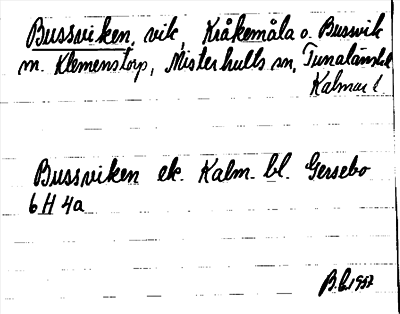 Bussviken, vik, Kråkemåla o. Bussvik
m. Klemenstorp, Misterhults sn, Tunaläns hd
Kalmar l
Bussviken ek. Kalm. bl. Gersebo
6 H 4a
1957